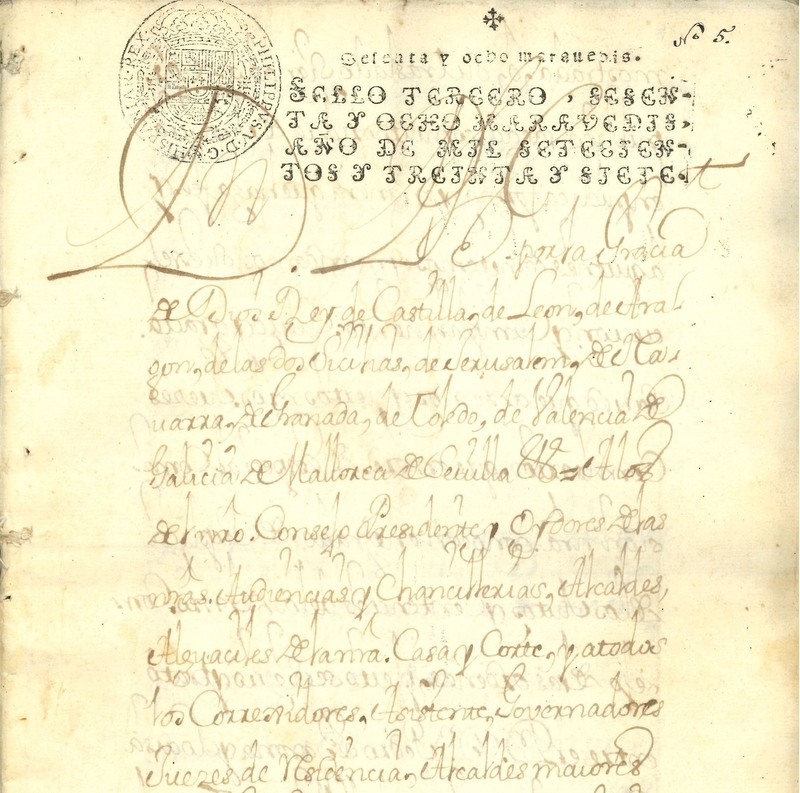 PHILIPPUS V D G HISPANIAR REX
No 5.
Sesenta y ocho maravedis.
SELLO TERCERO, SESEN-
TA Y OCHO MARAVEDIS,
AÑO DE MIL SETECIEN-
TOS Y TREINTA Y SIETE.
D. Phe
por la Gracia
de Dios Rey de Castilla, de Leon, de Ara-
gon, de las dos Sicilias, de Jerusalem, de Na-
uarra, de Granada, de Toledo, de Valencia de
Galicia de Mallorca de Seuilla &a = A los
de el nro. Consejo Presidente y Oydores de las
nras. Audiencias y Chancillerias, Alcaldes,
Alguaciles de la nra. Casa y Corte, y a todos
los Corregidores, Asistente, Governadores
Juezes de Residencia, Alcaldes maiores